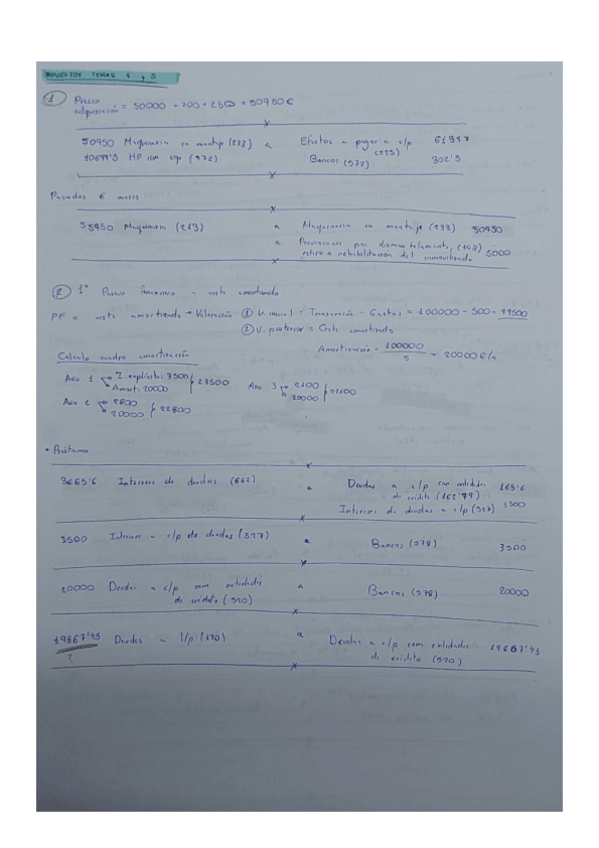 SUPUESTOS TEMAS 4 y 5
① Precio adquisición = 50000 - 700 + 250 = 50950 €
50950 Maquinaria en montaje (233) a Efectos a pagar a c/p (525) 61347
HP IVA sop (472) Bancos (572) 302'5
Pasados 6 meses
Maquinaria (213) a Maquinaria en montaje (233) 50950
a Provisiones por desmantelamiento, (143) 5000
retiro o rehabilitación del inmovilizado
② 1º Pasivo financiero a coste amortizado
PF a coste amortizado → Valoración ① V. inicial = Transacción - Gastos = 100000 - 500 = 99500
② V. posterior = Coste amortizado
Amortización = 100000 / 5 = 20000 €/a
Calculo cuadro amortización
Año 1 I. explícitos: 3500 Amort: 20000 23500
Año 3 2100 20000 22100
Año 2 2800 20000 22800
• Préstamo
3665'6 Intereses de deudas (662) a Deudas a c/p con entidades de crédito 165'6
Intereses de deudas a c/p (527) 3500
3500 Intereses a c/p de deudas (527) a Bancos (572) 3500
20000 Deudas a c/p con entidades de crédito (520) a Bancos (572) 20000
19867'93 Deudas a l/p (170) a Deudas a c/p con entidades de crédito (520) 19867'93
?